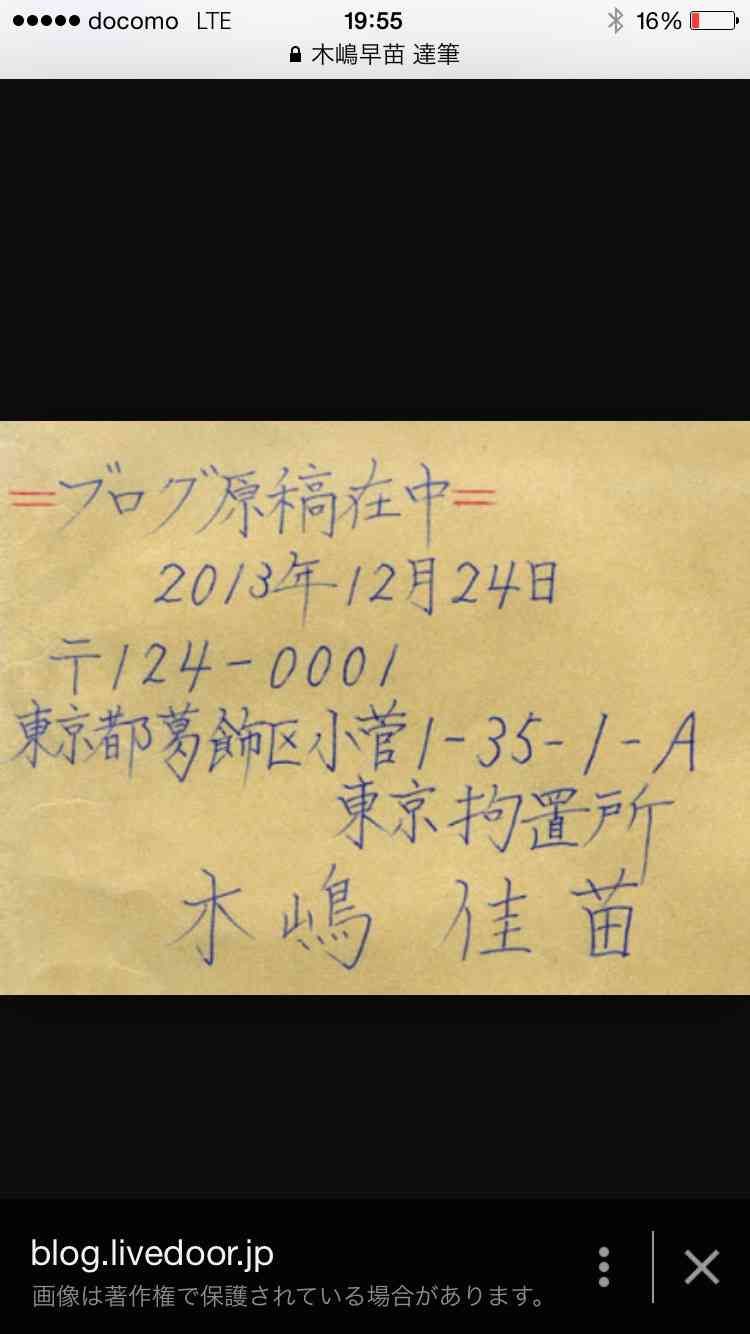 docomo LTE 19:55 16%
木嶋早苗 達筆
=ブログ原稿在中=
2013年12月24日
〒124-0001
東京都葛飾区小菅1-35-1-A
東京拘置所
木嶋 佳苗
blog.livedoor.jp
画像は著作権で保護されている場合があります。